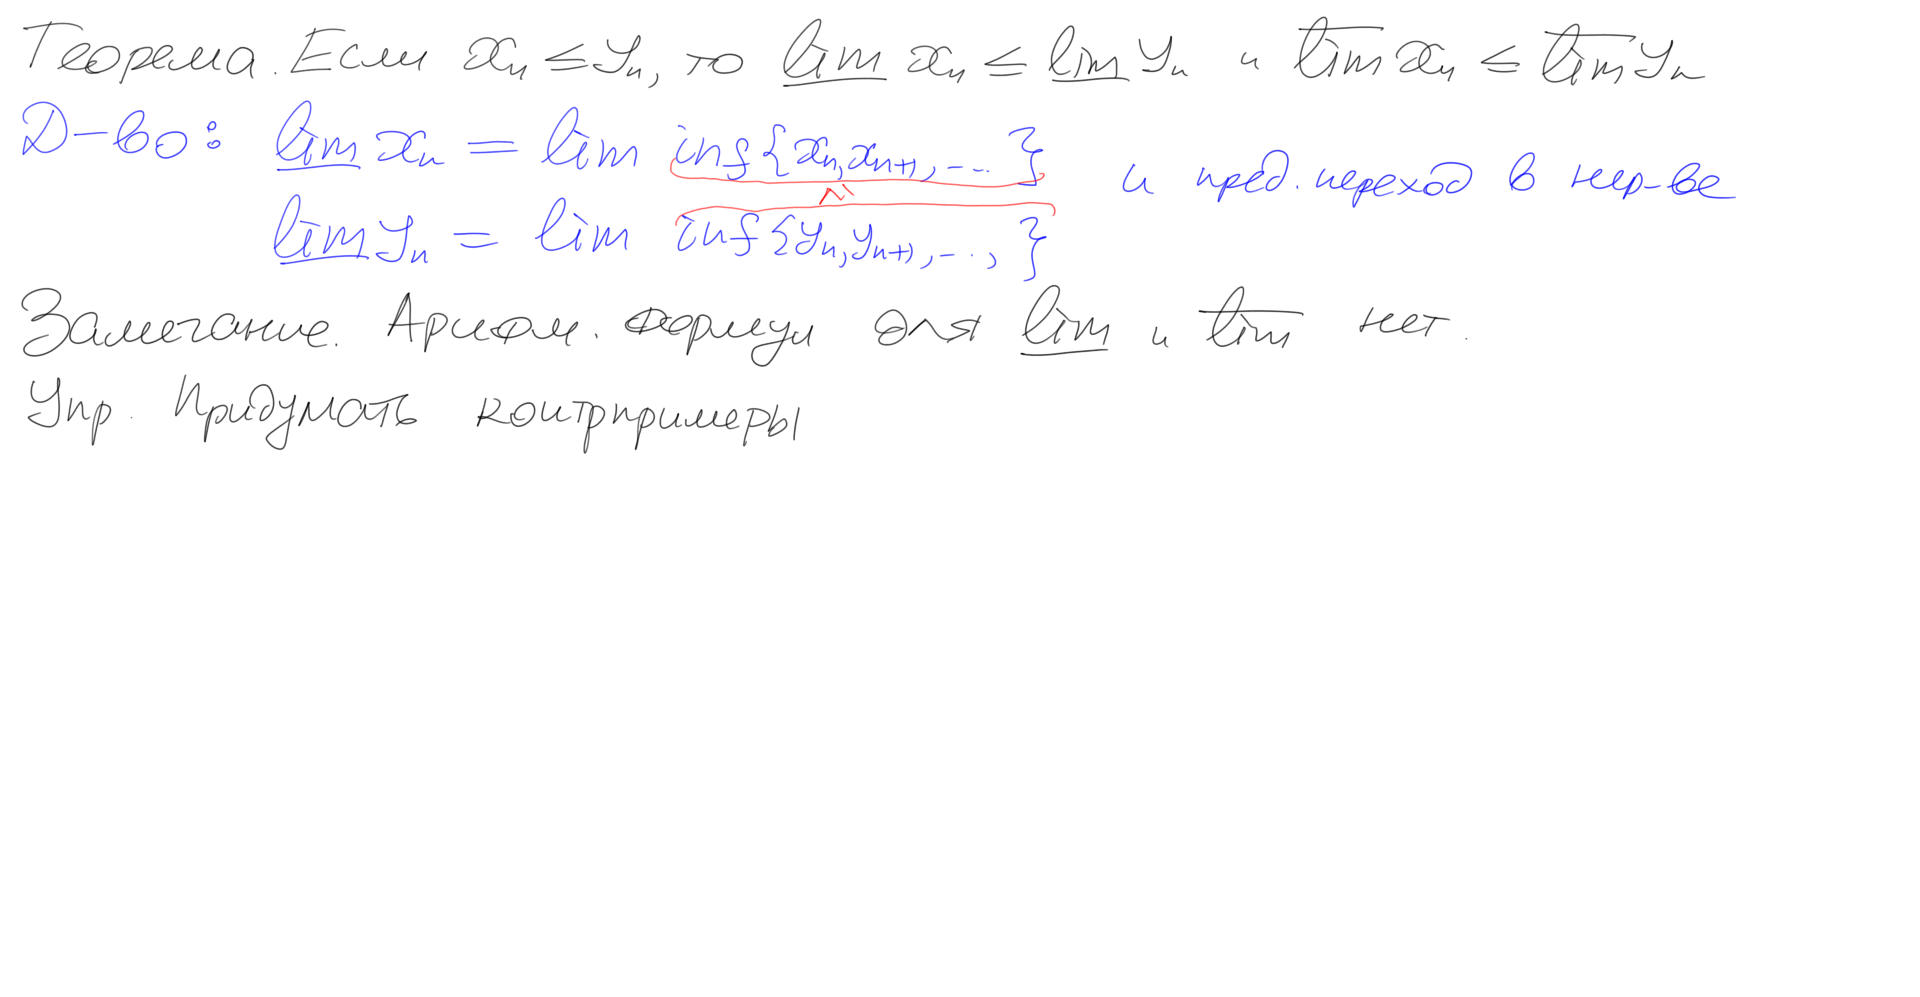 Теорема. Если xₙ ≤ yₙ, то \underline{lim} xₙ ≤ \underline{lim} yₙ и \overline{lim} xₙ ≤ \overline{lim} yₙ
Д-во: \underline{lim} xₙ = lim inf{xₙ, xₙ₊₁, ...} и пред. переход в нер-ве
∧\
\underline{lim} yₙ = lim inf{yₙ, yₙ₊₁, ..., }
Замечание. Арифм. формул для \underline{lim} и \overline{lim} нет.
Упр. Придумать контрпримеры